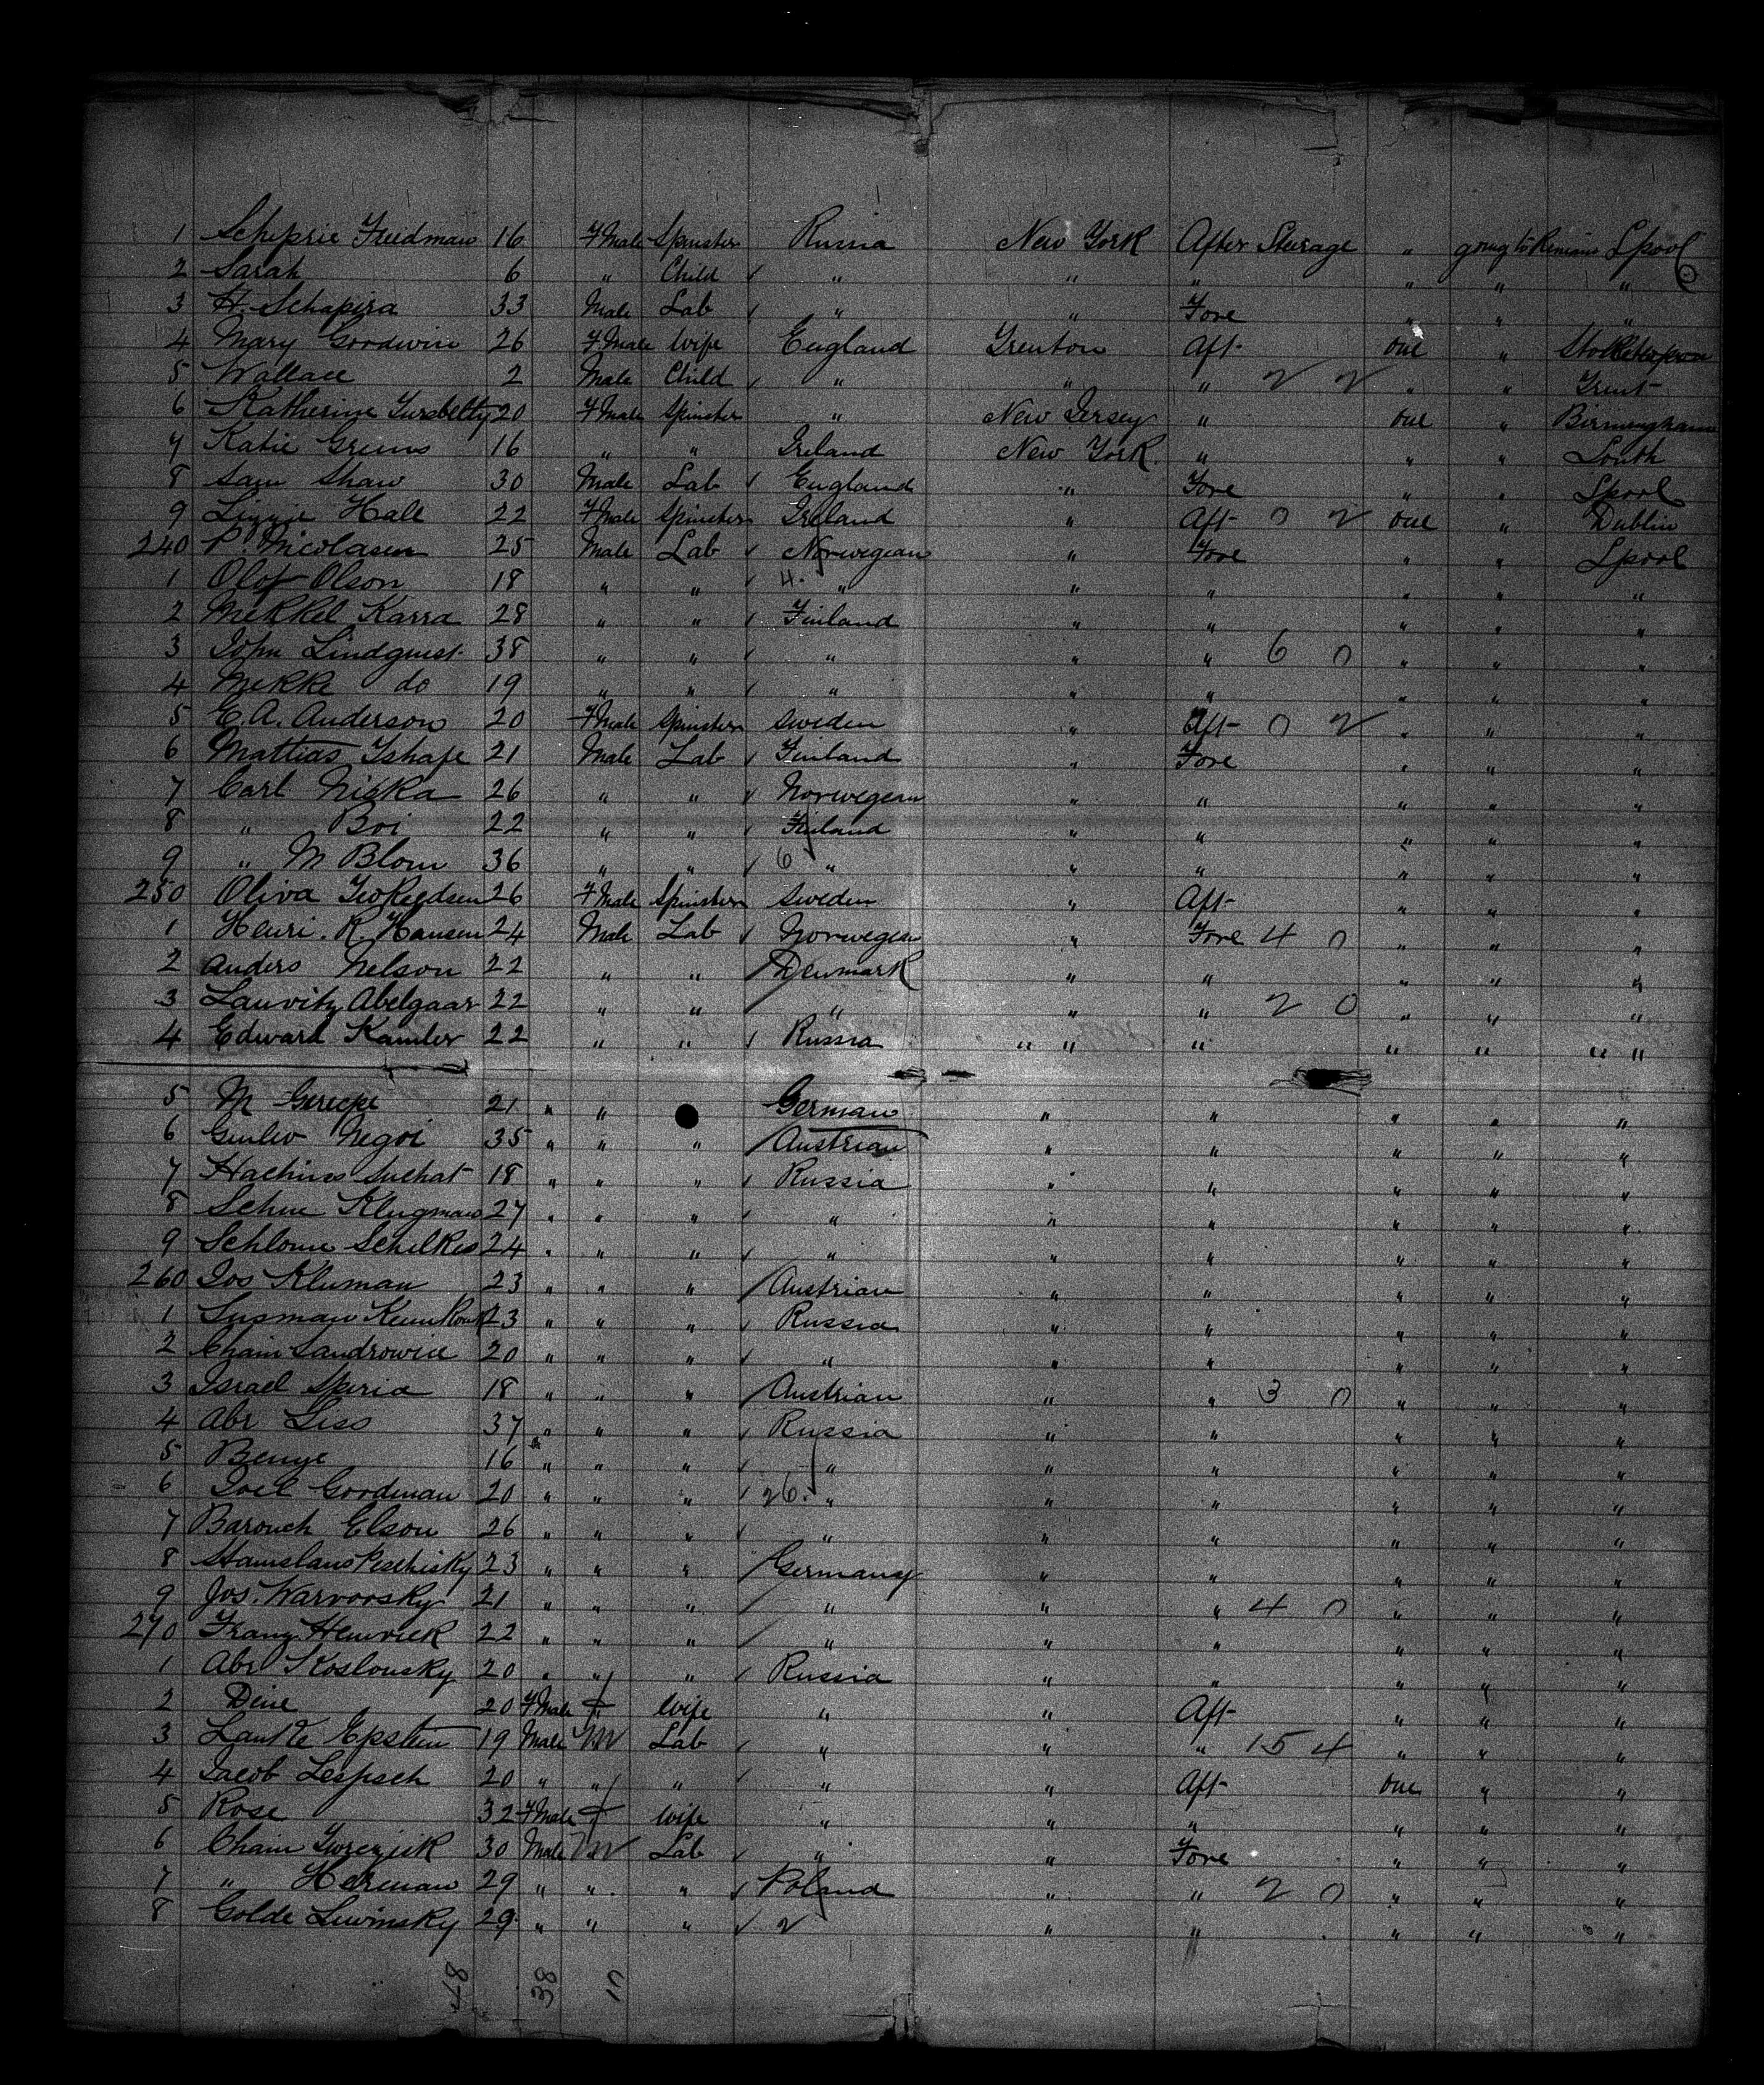 1 Schiprie Freidman 16 FMale Spinster Russia New York After Sterage " going to Remain Lpool
2 Sarah 6 " Child " " " " " "
3 H. Schapira 33 Male Lab " " Fore " " "
4 Mary Goodwin 26 FMale Wife England Trenton Aft one "
5 Wallace 2 Male Child " " " 2 2 " " Trent
6 Katherine 20 FMale Spinster " New Jersey " one " Birmingham
7 Katie Greims 16 " " Ireland New York " " " Louth
8 Sam Shaw 30 Male Lab England " Fore " " Lpool
9 Lizzie Hall 22 FMale Spinster Ireland " Aft 0 2 one " Dublin
240 P. Nicolasen 25 Male Lab Norwegian " Fore " " Lpool
1 Olof Olson 18 " " 4. " " " " " "
2 Mekkel Karra 28 " " Finland " " " " "
3 John Lindquist 38 " " " " " 6 0 " " "
4 Mekke do 19 " " " " " " " "
5 E.A. Anderson 20 FMale Spinster Sweden " Aft 0 2 " " "
6 Mattias Ishape 21 Male Lab Finland " Fore " " "
7 Carl Niska 26 " " Norwegian " " " " "
8 " Boi 22 " " Finland " " " " "
9 " M Blom 36 " " 6 " " " " " "
250 Oliva 26 FMale Spinster Sweden " Aft " " "
1 Henri. R. Hansen 24 Male Lab Norwegian " Fore 4 0 " " "
2 Anders Nelson 22 " " Denmark " " " " "
3 Lauvitz Abelgaar 22 " " " " " 2 0 " " "
4 Edward Kamler 22 " " Russia " " " " " " "
5 M Gerecke 21 " " German " " " " "
6 Negoi 35 " " " Austrian " " " " "
7 Suchat 18 " " " Russia " " " " "
8 Klugman 27 " " " " " " " " "
9 Schlome Schilkes 24 " " " " " " " " "
260 Jos Kluman 23 " " " Austrian " " " " "
1 Susman 23 " " " Russia " " " " "
2 Chaim Landrowice 20 " " " " " " " " "
3 Israel Speria 18 " " " Austrian " " 3 0 " " "
4 Abr Liss 37 " " " Russia " " " " "
5 Benge 16 " " " " " " " " "
6 Joel Goodman 20 " " " 26. " " " " " "
7 Barouch Elson 26 " " " " " " " " "
8 Stanislaus Peschisky 23 " " " Germany " " " " "
9 Jos. Warvorsky 21 " " " " " " 4 0 " " "
270 Franz Henrick 22 " " " " " " " " "
1 Abr Koslousky 20 " " " Russia " " " " "
2 Dine 20 FMale f Wife " " Aft " " "
3 Epstein 19 Male M Lab " " " 15 4 " " "
4 Jacob Lespsch 20 " " " " " Aft one " "
5 Rose 32 FMale f Wife " " " " " "
6 Chaim 30 Male M Lab " " Fore " " "
7 " Herman 29 " " " Poland " " 2 0 " " "
8 Golde Lewinsky 29 " " " 2 " " " " "
48 38 10